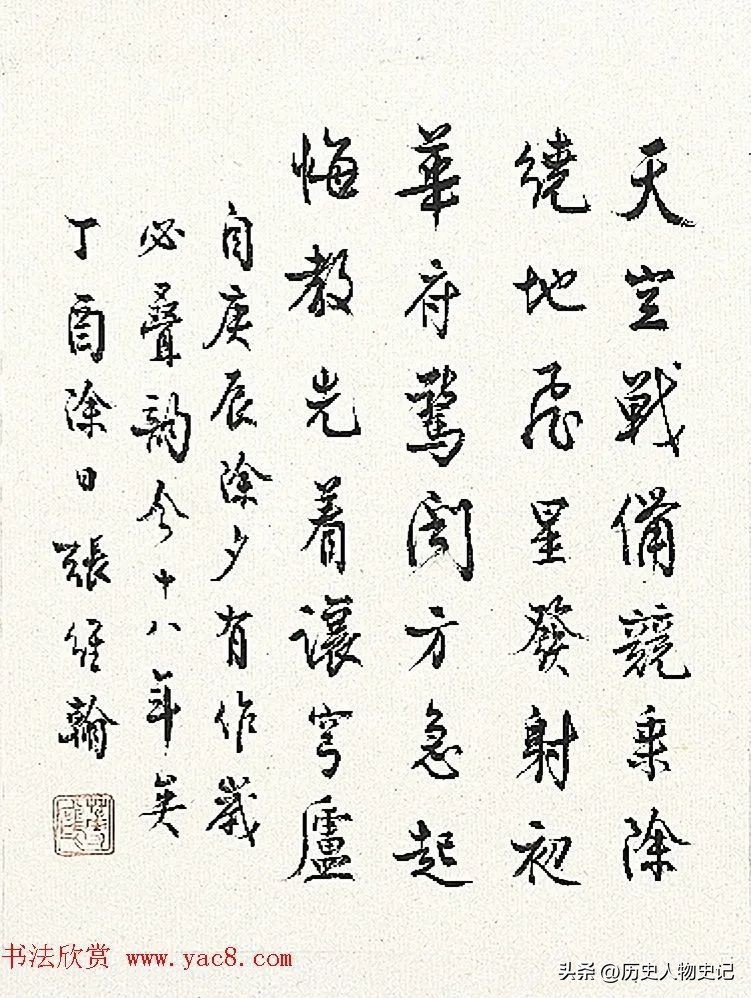 天空戰備競乘除
繞地飛星發射初
華府驚聞方急起
悔教先着讓穹廬
自庚辰除夕有作歲
必疊韻今十八年矣
丁酉除日張維翰
书法欣赏 www.yac8.com
头条 @历史人物史记